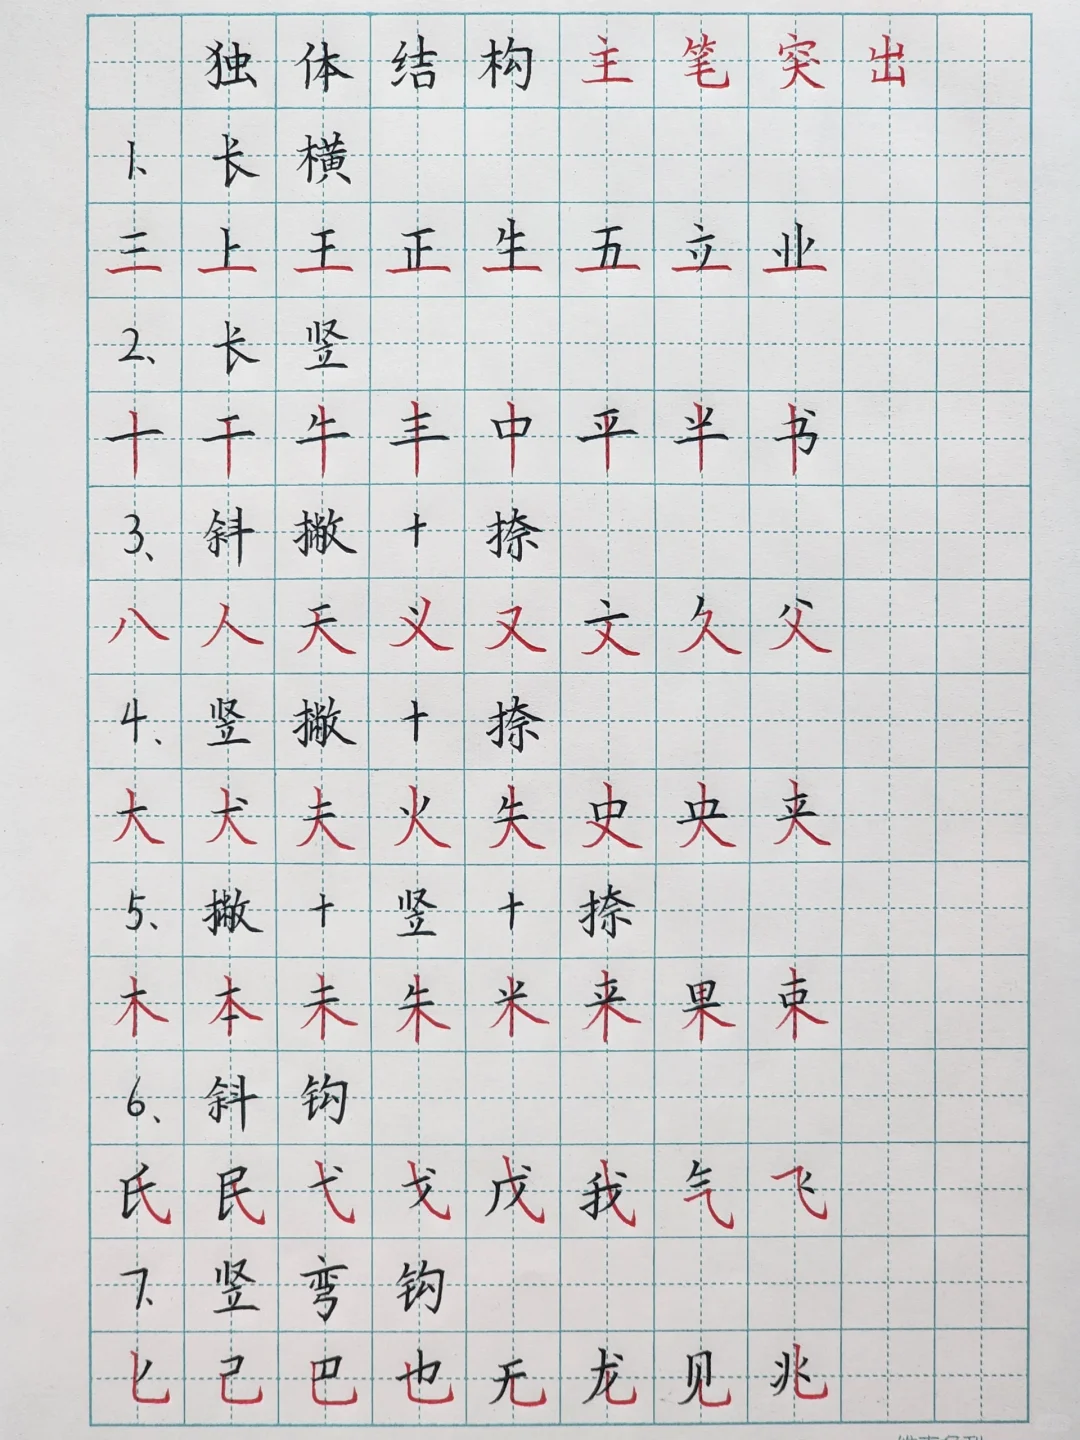 独体结构主笔突出
1、长横
三上王正生五立业
2、长竖
十干牛丰中平半书
3、斜撇+捺
八人天义又文久父
4、竖撇+捺
大犬夫火失史央夹
5、撇+竖+捺
木本未朱米来果束
6、斜钩
氏民弋戈戊我气飞
7、竖弯钩
匕己巴也无龙见兆